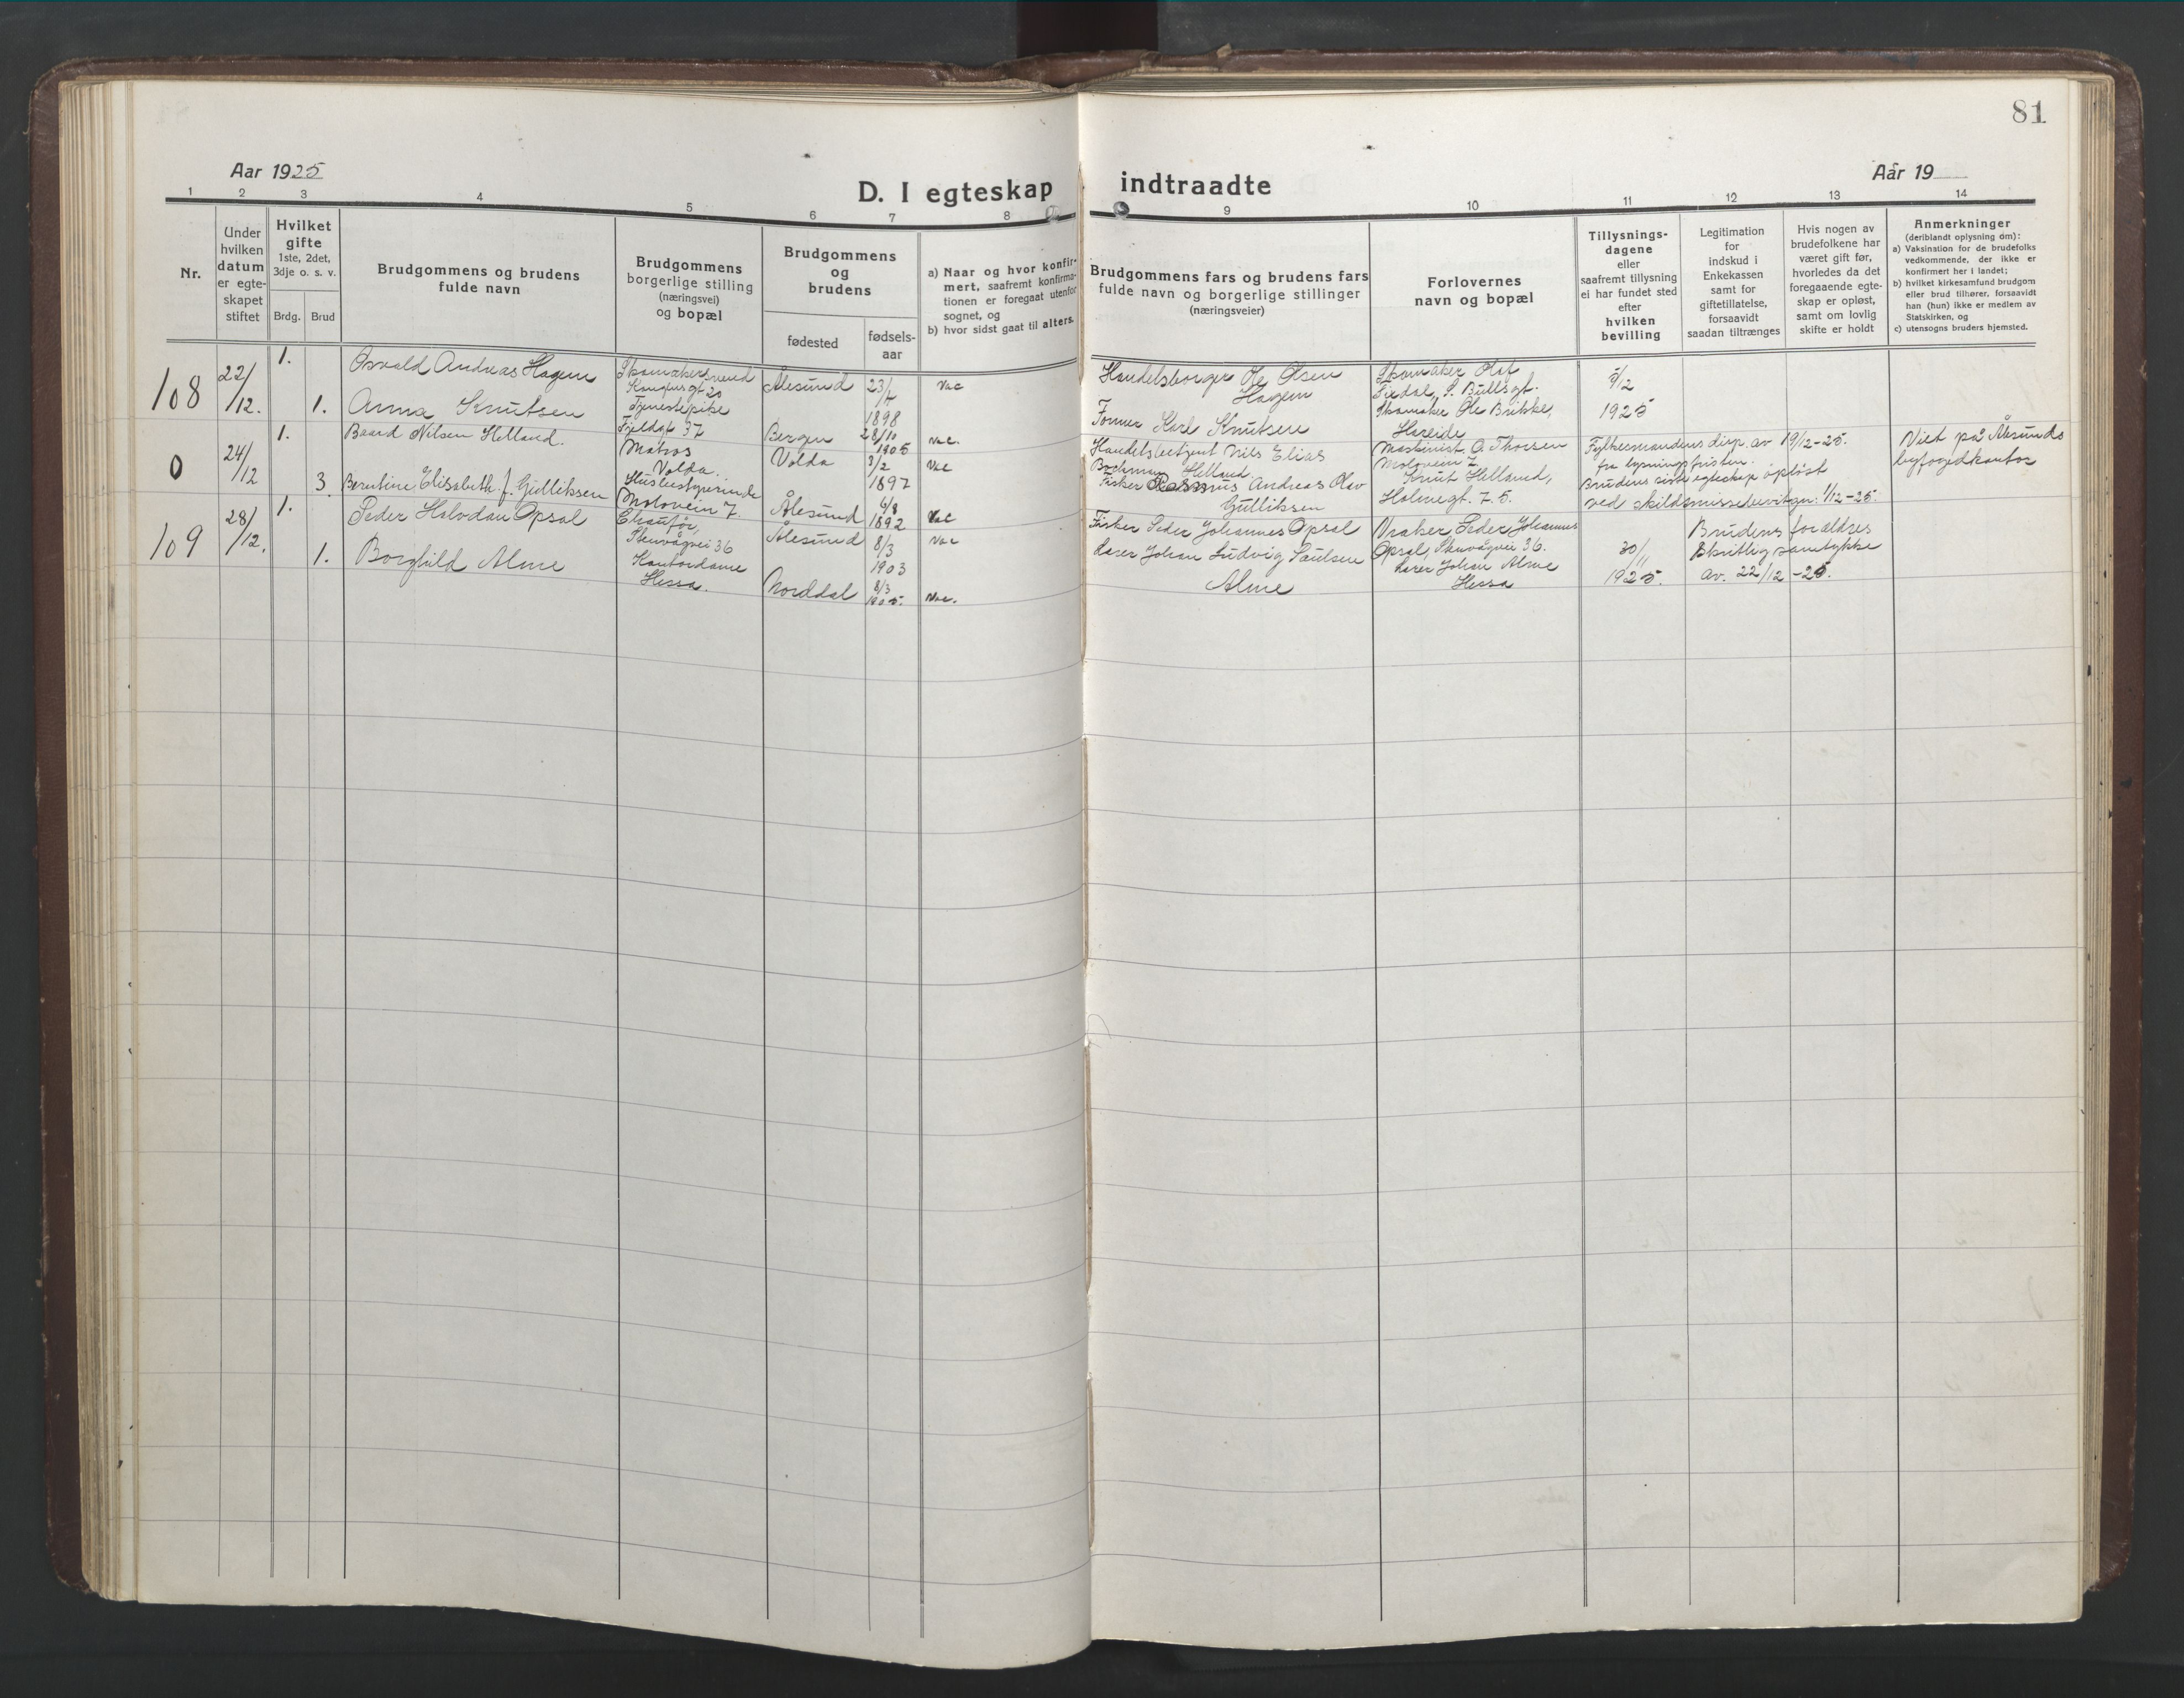 81
Aar 1925
D. I egteskap indtraadte
Aar 19
1 2 3 4 5 6 7 8 9 10 11 12 13 14
Nr.
Under
hvilken
datum
er egte-
skapet
stiftet
Hvilket
gifte
1ste, 2det,
3dje o. s. v.
Brdg. Brud
Brudgommens og brudens
fulde navn
Brudgommens
borgerlige stilling
(næringsvei)
og bopæl
Brudgommens
og
brudens
fødested
fødsels-
aar
a) Naar og hvor konfir-
mert, saafremt konfirma-
tionen er foregaat utenfor
sognet, og
b) hvor sidst gaat til alters.
Brudgommens fars og brudens fars
fulde navn og borgerlige stillinger
(næringsveier)
Forlovernes
navn og bopæl
Tillysnings-
dagene
eller
saafremt tillysning
ei har fundet sted
efter
hvilken
bevilling
Legitimation
for
indskud i
Enkekassen
samt for
giftetillatelse,
forsaavidt
saadan tiltrænges
Hvis nogen av
brudefolkene har
været gift før,
hvorledes da det
foregaaende egte-
skap er opløst,
samt om lovlig
skifte er holdt
Anmerkninger
(deriblandt oplysning om):
a) Vaksination for de brudefolks
vedkommende, der ikke er
konfirmert her i landet;
b) hvilket kirkesamfund brudgom
eller brud tilhører, forsaavidt
han (hun) ikke er medlem av
Statskirken, og
c) utensogns bruders hjemsted.
108
22/12.
1.
Osvald Andreas Hagen
Skomakersvend
Kongensgt 20
Ålesund
23/7
1898
Vac
Handelsborger Ole Olsen
Hagen
Skomaker Olaf
Fixdal, S. Bullsgt.
5/12
1925
1.
Anna Knutsen
Tjenestepike
Fjeldgt 37
Bergen
28/10
1905
Vac.
Former Karl Knutsen
Skomaker Ole Brikke,
Hareide
0
24/12
1.
Baard Nilsen Helland.
Matros
Volda.
Volda
3/2
1897
Vac
Handelsbetjent Nils Elias
Bachman Helland
Maskinist O. Thorsen
Moloveien 7
Fylkesmandens disp. av 19/12-25.
fra lysningsfristen.
Viet på Ålesunds
byfogedkontor
3.
Berntine Elisabeth f. Gulliksen
Husbestyrerinde
Moloveien 7
Ålesund
6/8
1892
Vac
Fisker Rasmus Andreas Olav
Gulliksen
Knut Helland,
Holmegt. 7.5.
Brudens siste egteskap opløst
ved skilsmissebevilgn. 1/12-25.
109
28/12.
1.
Peder Halvdan Opsal
Chauffør,
Stenvågvei 36
Ålesund
8/3
1903
Vac
Fisker Peder Johannes Opsal
Vraker Peder Johannes
Opsal, Stenvågvei 36.
30/11
1925.
Brudens forældres
Skriftlig samtykke
av. 22/12-25.
1.
Borghild Alme
Kontordame
Hessa.
Norddal
8/3
1905.
Vac.
Lærer Johan Ludvig Paulsen
Alme
Lærer Johan Alme
Hessa